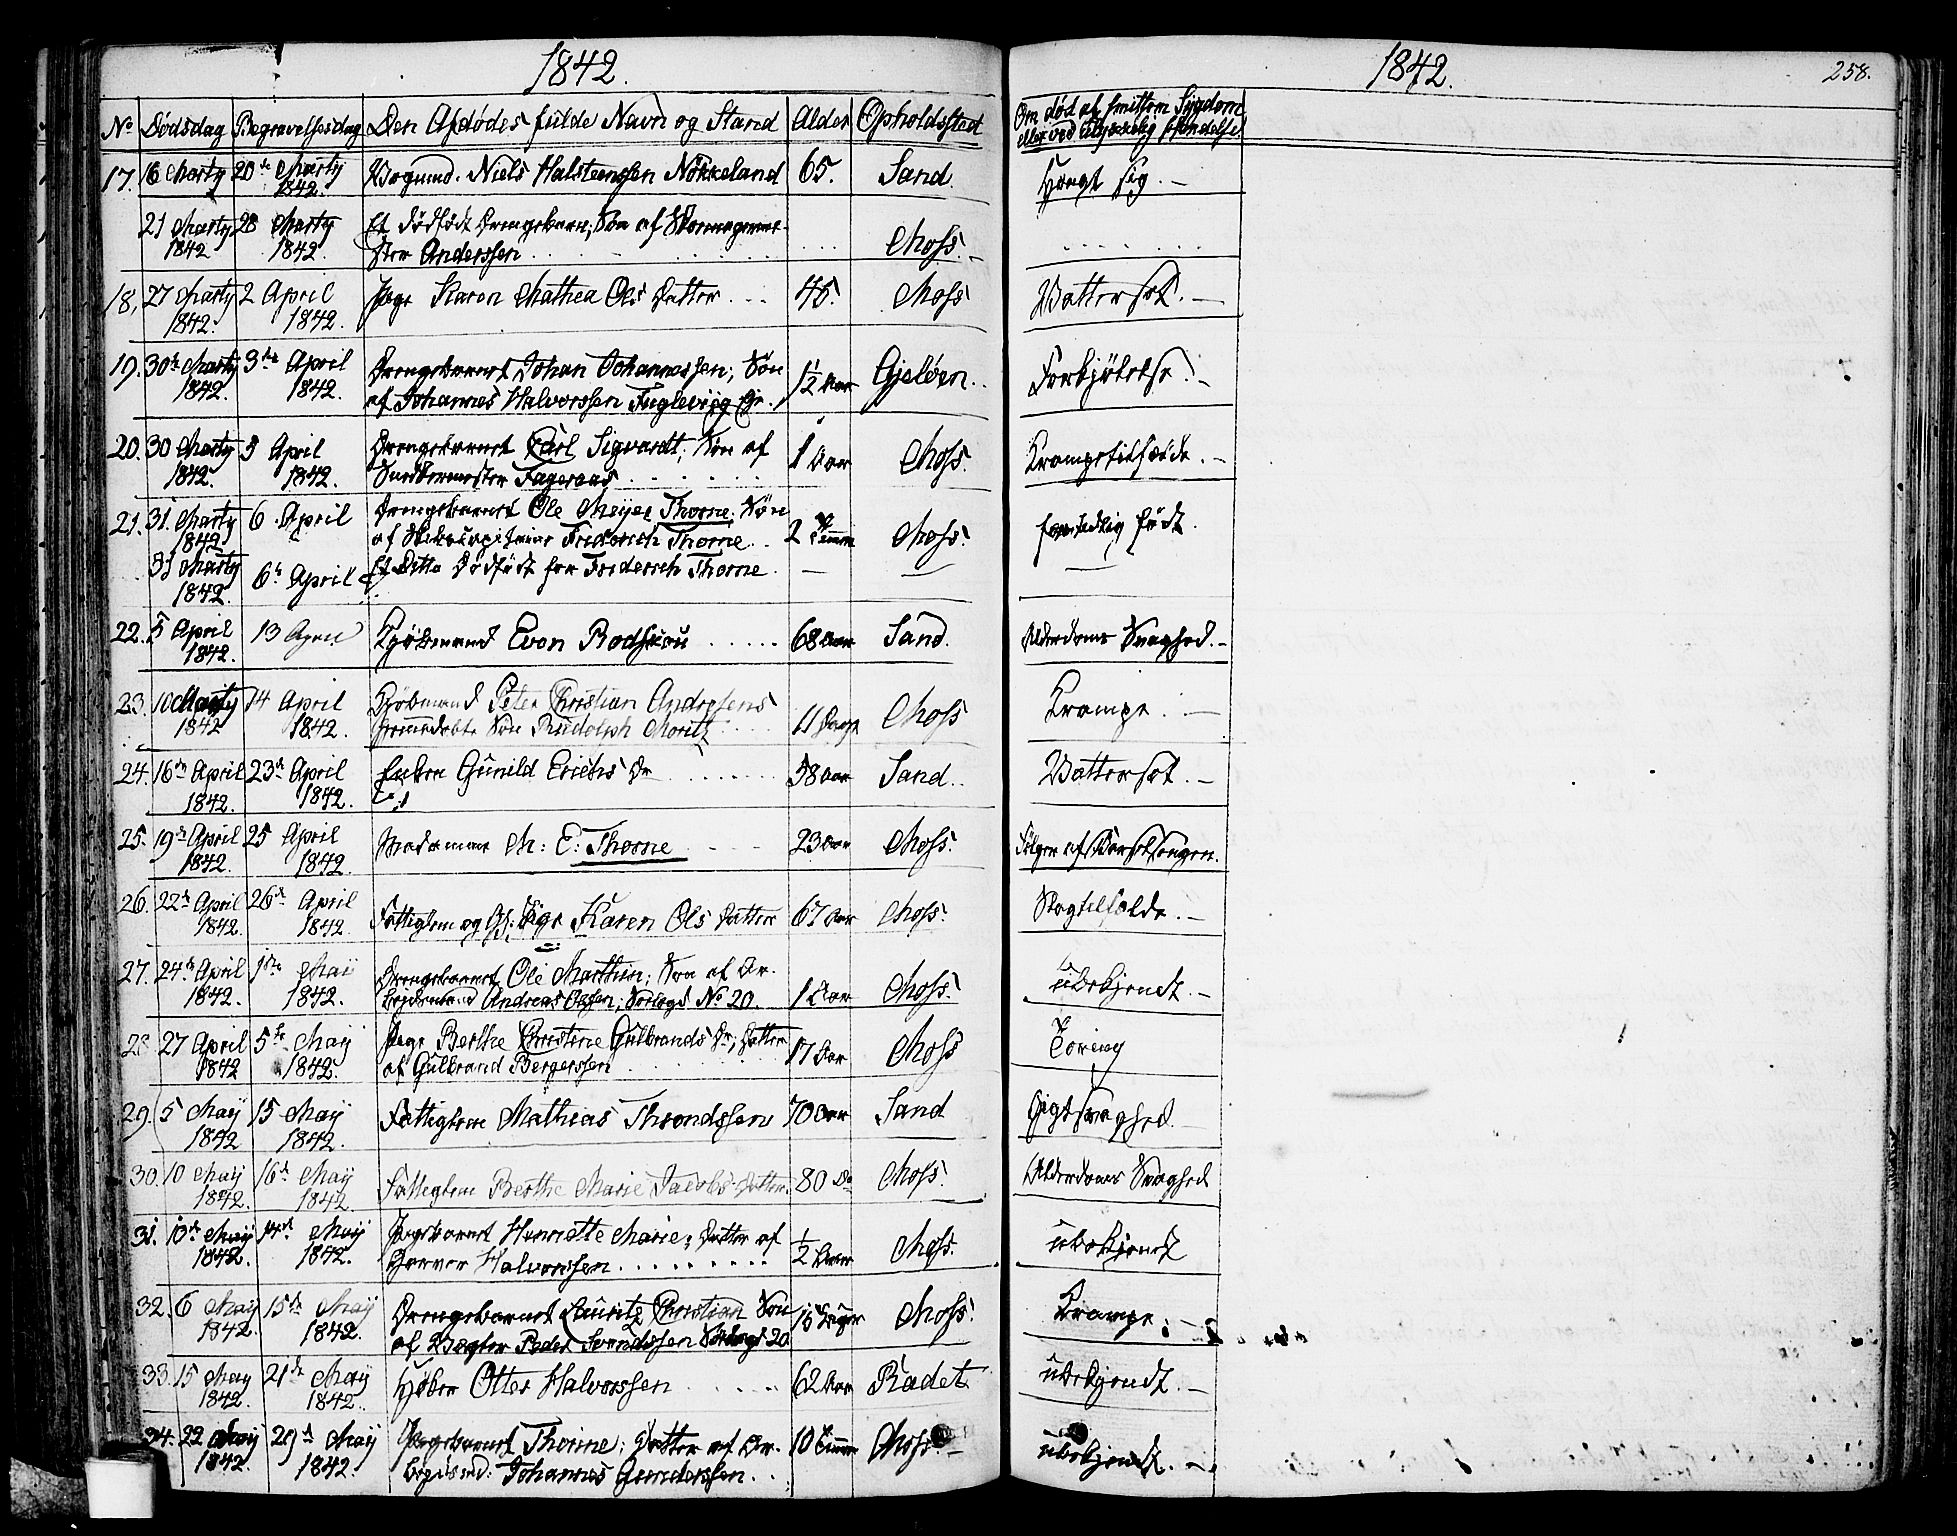 1842.
1842.
258.
No Dödsdag Begravelsesdag Den Afdödes fulde Navn og Stand Alder Opholdssted
Om död af smittsom Sygdom
eller ved ulykkelig Hændelse
17. 16 Marty 20de Marty Niels Halsteenssen Nökkeland 65. Sand. Hængt sig.
1842.
21 Marty 28 Marty Et dödfödt Drengebarn, Sön af
1842 1842. ster Anderssen Moss.
18, 27 Marty 2 April Pige Karen Mathea Ols Datter 45. Moss Vattersot.
1842. 1842.
19. 30te Marty 3die April Drengebarnet Johan Johannessen; Sön 1½ Aar Gjelöen. Forkjölelse.
1842. 1842. af Johannes Halvorssen Fuglevig Gr.
20. 30 Marty 3 April Drengebarnet Carl Sigvardt, Sön af 1 Aar Moss. Krampetilfælde.
1842. 1842. Snedkermester Fageraas
21. 31. Marty 6 April Drengebarnet Ole Meyer Thorne. Sön 2 Timer Moss. for tidlig födt.
1842 af Skibscapitaine Frederich Thorne
31 Marty 6te April Et Ditto Dödfödt for Frederich Thorne
1842.
22. 5 April 13 April Kjöbmand Even Rodssou 68 Aar Sand. Alderdoms Svaghed.
1842.
23. 10 Marty 14 April Kjöbmand Peter Christian Andresens 11 Dage Moss Krampe.
1842 1842. hjemmedöbte Sön Rudolph Moritz
24. 16de April 23de April Enken Gunild Erichs Dr 58 Aar Sand. Vattersot.
1842. 1842.
25. 19de April 25 April Madamme M: E: Thorne 23 Aar Moss. Fölger af Barselsengen.
1842. 1842.
26. 22de April 26de April Fattiglem og Pige Karen Ols Datter 67 Aar Moss. Slagtilfælde.
1842. 1842.
27. 24de April 1ste Maii Drengebarnet Ole Marthin; Sön af Ar- 1 Aar Moss. Ubekjendt.
1842. 1842. beidsmand Andreas Olssen; No 20.
28 27 April 5te Maij Pige Berthe Christine Gulbrands Dr; Datter 17 Aar Moss Tæring
1842 1842. af Gulbrand Bergerssen
29. 5 Maij 15 Maij Fattiglem Mathias Throndssen 70 Aar Sand Gigtsvaghed.
1842 1842.
30. 10 Maij 16de Maij Fattiglem Berthe Marie Jacobs Datter. 80 Do Moss. Alderdoms Svaghed
1842. 1842.
31. 10de Maij 14de Maij Pigebarnet Henriette Marie; Datter af ½ Aar Moss. ubekjendt
1842. 1842. Garver Halvorssen
32. 6 Maij 15de Maij Drengebarnet Lauritz Christian Sön 15 Uger Moss. Krampe.
1842. 1842. af Vægter Peder Svendssen 20
33. 15 May 21de Maij Otter Halvorssen 62 Aar Radet ubekjendt.
1842. 1842.
34. 22 Maij 29de Maij Pigebarnet Thorine; Datter af Ar- 10 Timer Moss ubekjendt.
1842. 1842. beidsmd: Johannes Gunderssen.